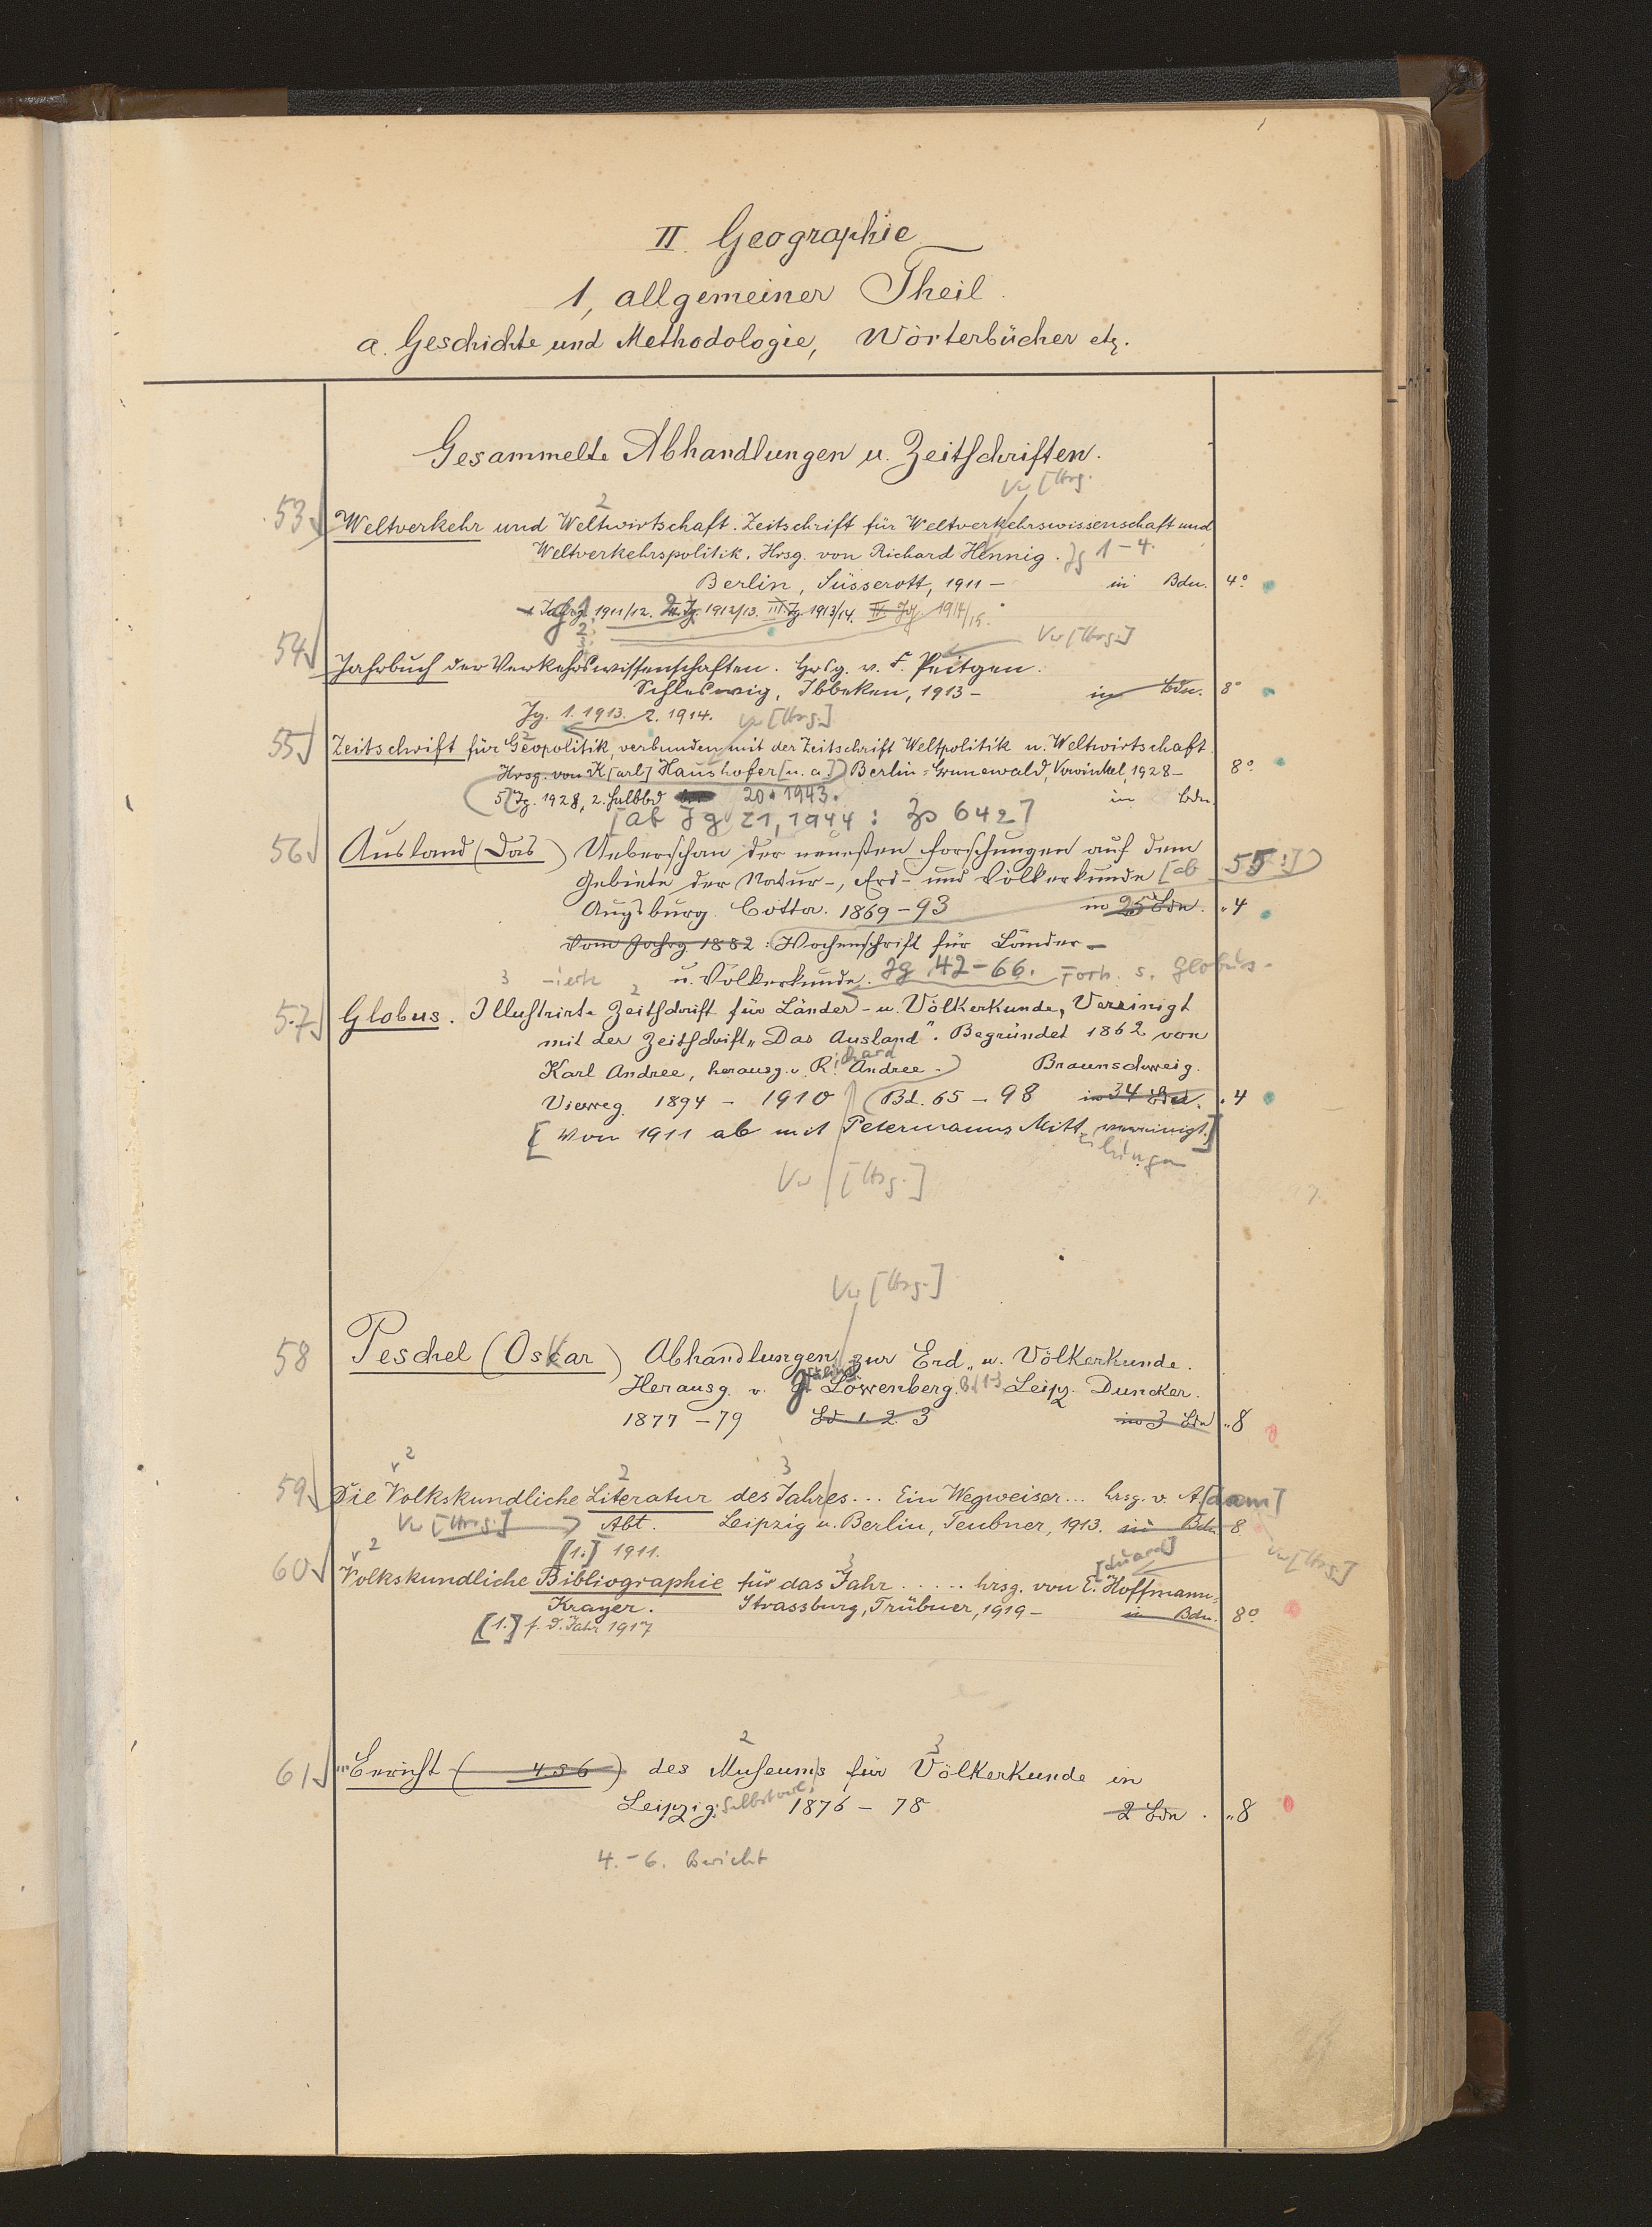 II. Geographie
1, allgemeiner Theil.
a. Geschichte und Methodologie, Wörterbücher etz.
Gesammelte Abhandlungen u. Zeitschriften.
Vw [Hrsg.
2
53 Weltverkehr und Weltwirtschaft. Zeitschrift für Weltverkehrswissenschaft und
Weltverkehrspolitik. Hrsg. von Richard Hennig. Jg 1-4.
Berlin, Süsserott, 1911 - in Bdn. 4°
Jahrg. 1911/12. II. Jg. 1912/13. III. Jg. 1913/14. IV. Jg. 1914/15.
Vw [Hrsg.]
54 Jahrbuch der Verkehrswissenschaften. Hrsg. v. F. Peitgen.
Schleswig, Ibbeken, 1913 - in Bdn. 8°
Jg. 1. 1913. 2. 1914. Vw [Hrsg.]
55 Zeitschrift für Geopolitik, verbunden mit der Zeitschrift Weltpolitik u. Weltwirtschaft.
Hrsg. von K[arl] Haushofer [u. a.] Berlin-Grunewald, Vowinkel, 1928 - 8°
5. Jg. 1928, 2. Halbbd 20. 1943. in Bdn
[ab Jg 21, 1944: Zs 642]
56 Ausland (Das) Ueberschau der neuesten Forschungen auf dem
Gebiete der Natur-, Erd- und Völkerkunde [ab 55:]
Augsburg. Cotta. 1869-93 in 25 Bdn. "4
Vom Jahrg 1882: Wochenschrift für Länder-
u. Völkerkunde. Jg. 42-66. Forts. s. Globus.
3 -ierte 2
57 Globus. Illustrirte Zeitschrift für Länder- u. Völkerkunde, Vereinigt
mit der Zeitschrift "Das Ausland". Begründet 1862 von
Karl Andree, herausg. v. Richard Andree. Braunschweig.
Vieweg. 1894 - 1910 Bd. 65 - 98 in 34 Bdn. "4
[Von 1911 ab mit Petermanns Mitteilungen vereinigt.]
Vw [Hrsg.]
Vw [Hrsg.]
58 Peschel (Oskar) Abhandlungen zur Erd- u. Völkerkunde.
Herausg. v. J. Löwenberg. Bd 1-3 Leipz. Duncker.
1877-79 Bd 1. 2. 3 in 3 Bdn "8
2 2 3
59 Die Volkskundliche Literatur des Jahres... Ein Wegweiser... hrsg. v. A[dam]
Vw [Hrsg.] Abt. Leipzig u. Berlin, Teubner, 1913. in Bdn. 8
[1.] 1911.
Vw [Hrsg.]
2 3
60 Volkskundliche Bibliographie für das Jahr ..... hrsg. von E[duard] Hoffmann-
Krayer. Strassburg, Trübner, 1919 - in Bdn. 8°
[1.] f. d. Jahr 1917
2 3
61 Bericht (4.5 6) des Museums für Völkerkunde in
Leipzig: Selbstverl. 1876 - 78 2 Bdn. "8
4.-6. Bericht